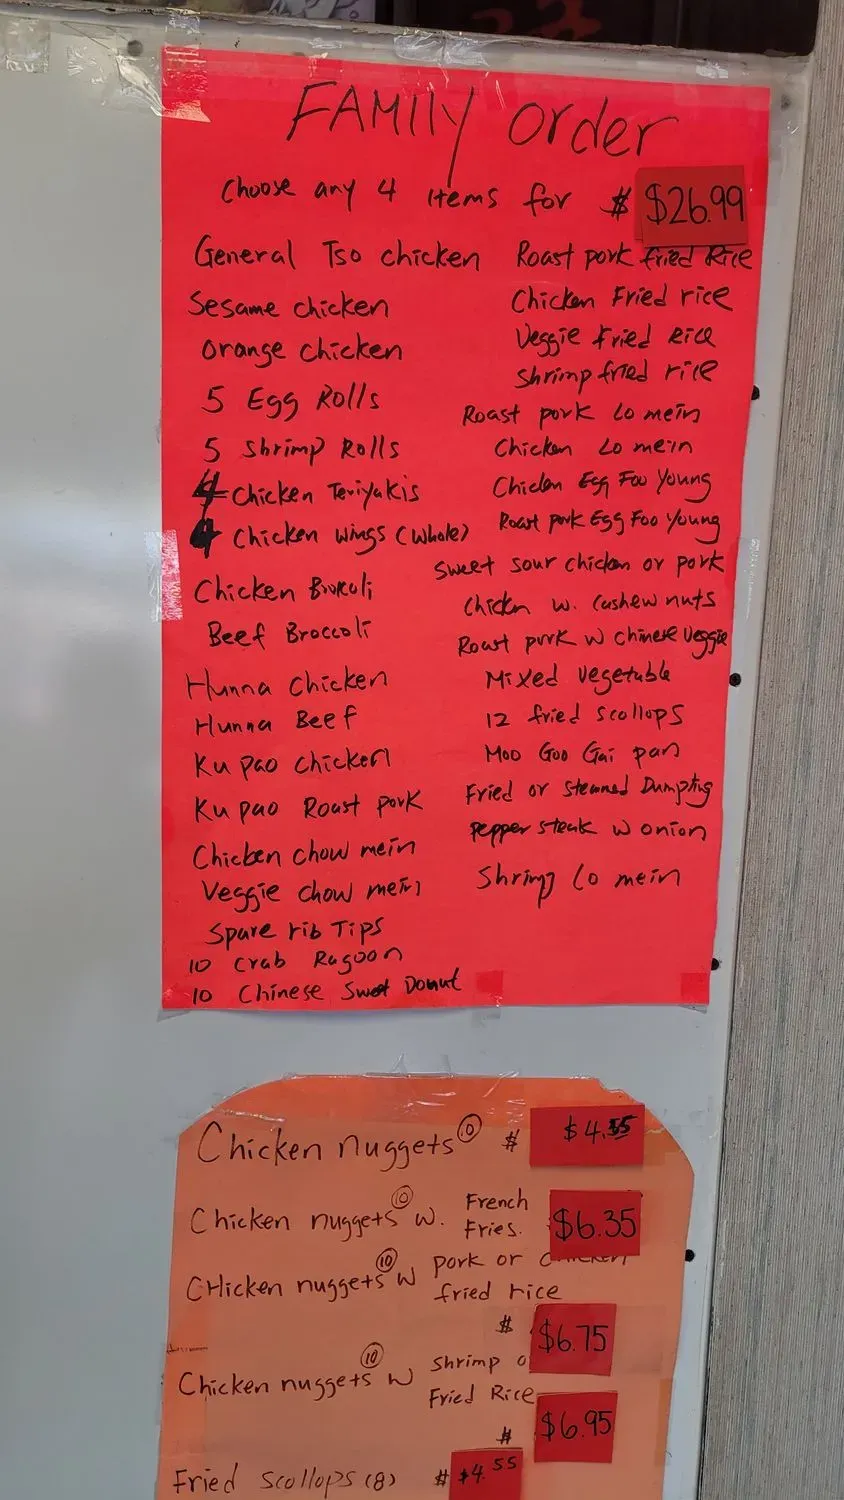 FAMILY order
Choose any 4 Items for $ $26.99
General Tso chicken
Sesame chicken
Orange chicken
5 Egg Rolls
5 Shrimp Rolls
4 Chicken Teriyakis
4 Chicken Wings (Whole)
Chicken Brokoli
Beef Broccoli
Hunna Chicken
Hunna Beef
Ku pao chicken
Ku pao Roast pork
Chicken chow mein
Veggie chow mein
Spare rib Tips
10 Crab Ragoon
10 Chinese Sweet Donut
Roast pork fried Rice
Chicken Fried rice
Veggie Fried Rice
Shrimp fried rice
Roast pork Lo mein
Chicken Lo mein
Chicken Egg Foo Young
Roast pork Egg Foo Young
Sweet sour chicken or pork
Chicken w. Cashew nuts
Roast pork w Chinese Veggie
Mixed Vegetable
12 fried scollops
Moo Goo Gai pan
Fried or Steamed Dumpting
pepper steak w onion
Shrimp Lo mein
Chicken nuggets 10 $ $4.55
Chicken nuggets 10 w. French Fries. $6.35
CHicken nuggets 10 w pork or chicken
fried rice
$ $6.75
Chicken nuggets 10 w Shrimp
Fried Rice
$ $6.95
Fried scollops (8) $ $4.55